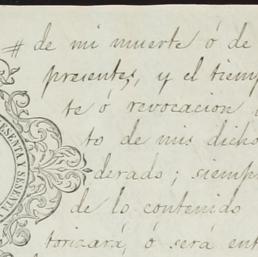 # de mi muerte ó de
presentes, y el tiemp
te ó revocacion
to de mis dicho
derado; siemp
de lo contenido
torizará, ó será ent
ESENTA Y SESENTA